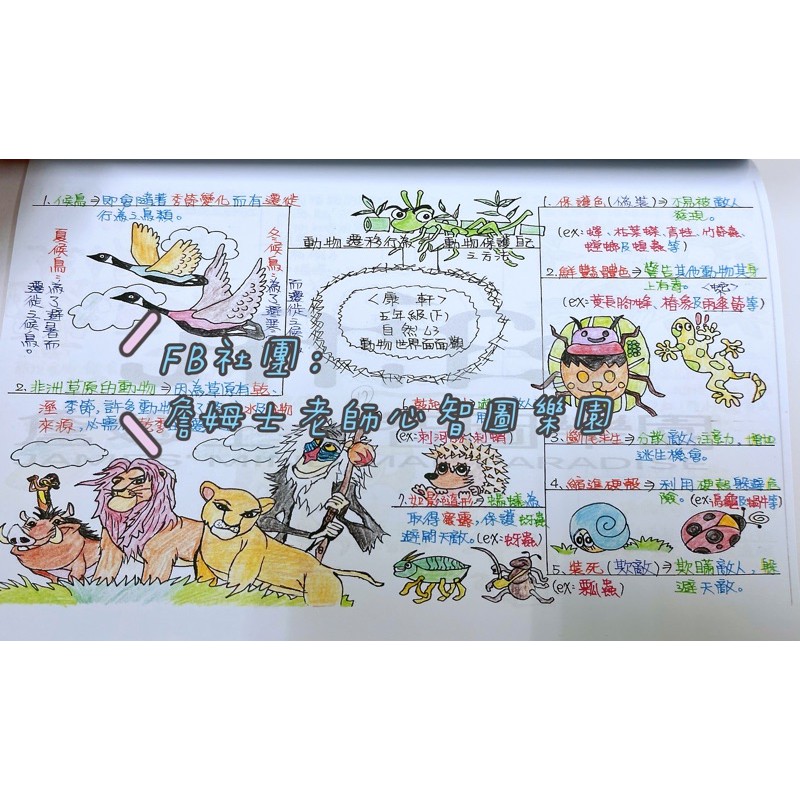 1. 候鳥→即會隨著季節變化而有遷徙
行為之鳥類。
夏候鳥:為了避暑而
遷徙之候鳥。
冬候鳥:為了避寒
而遷徙之候
2. 非洲草原的動物→因為草原有乾、
溼季節,許多動物
來源,必需
動物遷移行為
動物保護自己
之方法
<康軒>
五年級(下)
自然(3)
動物世界面面觀
FB社團:
詹姆士老師心智圖樂園
1. 保護色(偽裝)→不易被敵人
發現。
(ex:蟬、枯葉蝶、青蛙、竹節蟲、
螳螂及蝗蟲等)
2. 鮮豔體色→警告其他動物其身
上有毒。
(ex:黃長腳蜂、椿象及雨傘節等)
3. 斷尾求生→分散敵人注意力,增加
逃生機會。
4. 縮進硬殼→利用硬殼躲避危
險。(ex:烏龜及蝸牛等)
5. 裝死(欺敵)→欺瞞敵人,躲
(ex:瓢蟲)
避天敵。
(ex:刺河豚、刺蝟)
7.
→螞蟻為
取得蜜露,保護蚜蟲
避開天敵。(ex:蚜蟲)